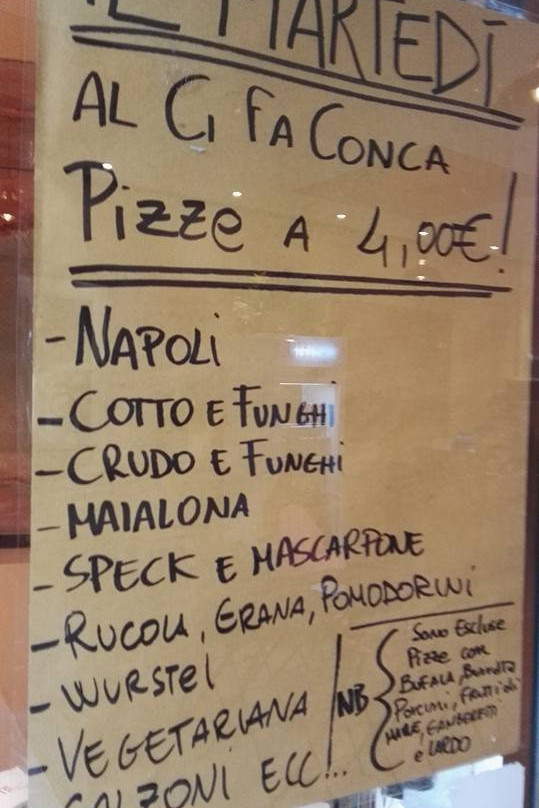 IL MARTEDÌ
AL Ci FA CONCA
Pizze A 4,00€!
- NAPOLi
- COTTO E FUNGHi
- CRUDO E FUNGHi
- MAIALONA
- SPECK E MASCARPONE
- RUCOLA, GRANA, POMODORINI
- WURSTEl
- VEGETARIANA
CALZONI ECC!...
NB
Sono Escluse
Pizze con
BUFALA, Burrata
Porcini, FRUTTI di
MARE, GAMBERETTI
e LARDO